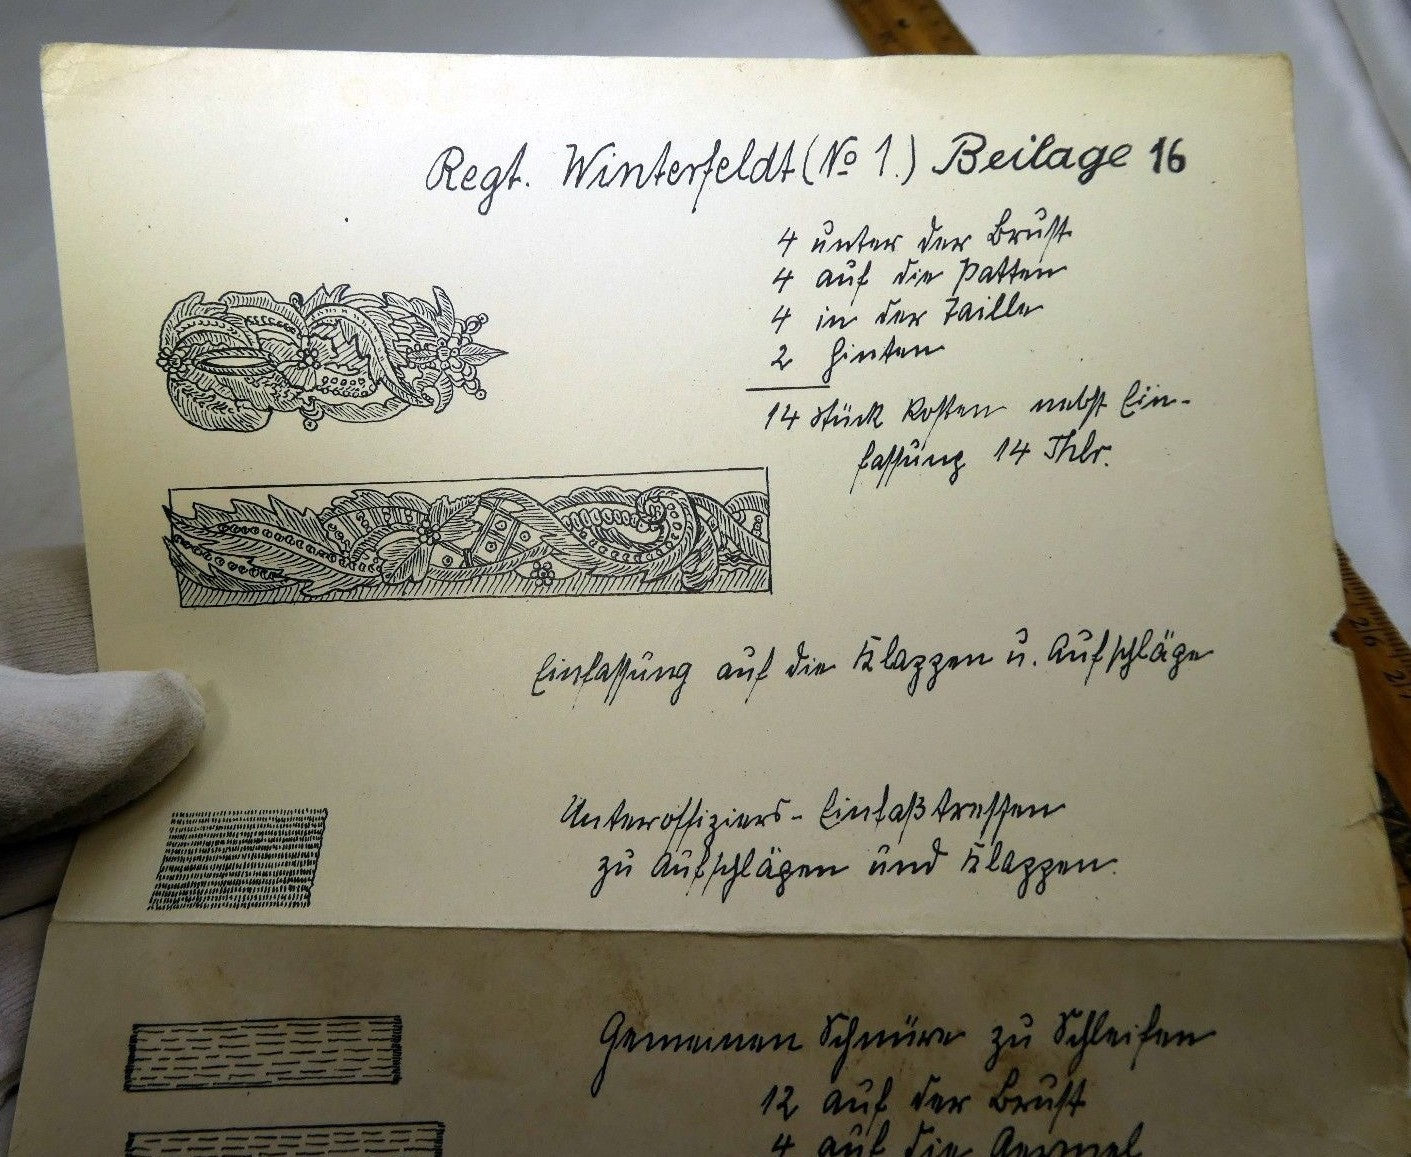 Regt. Winterfeldt (No 1.) Beilage 16
4 unter der Brust
4 auf die Patten
4 in der Taille
2 hinten
14 Stück kosten nebst Ein-
fassung 14 Thlr.
Einfassung auf die Klappen u. Aufschläge
Unteroffiziers-Einfaßtressen
zu Aufschlägen und Klappen.
Gemeinen Schnüre zu Schleifen
12 auf der Brust
4 auf die Aermel